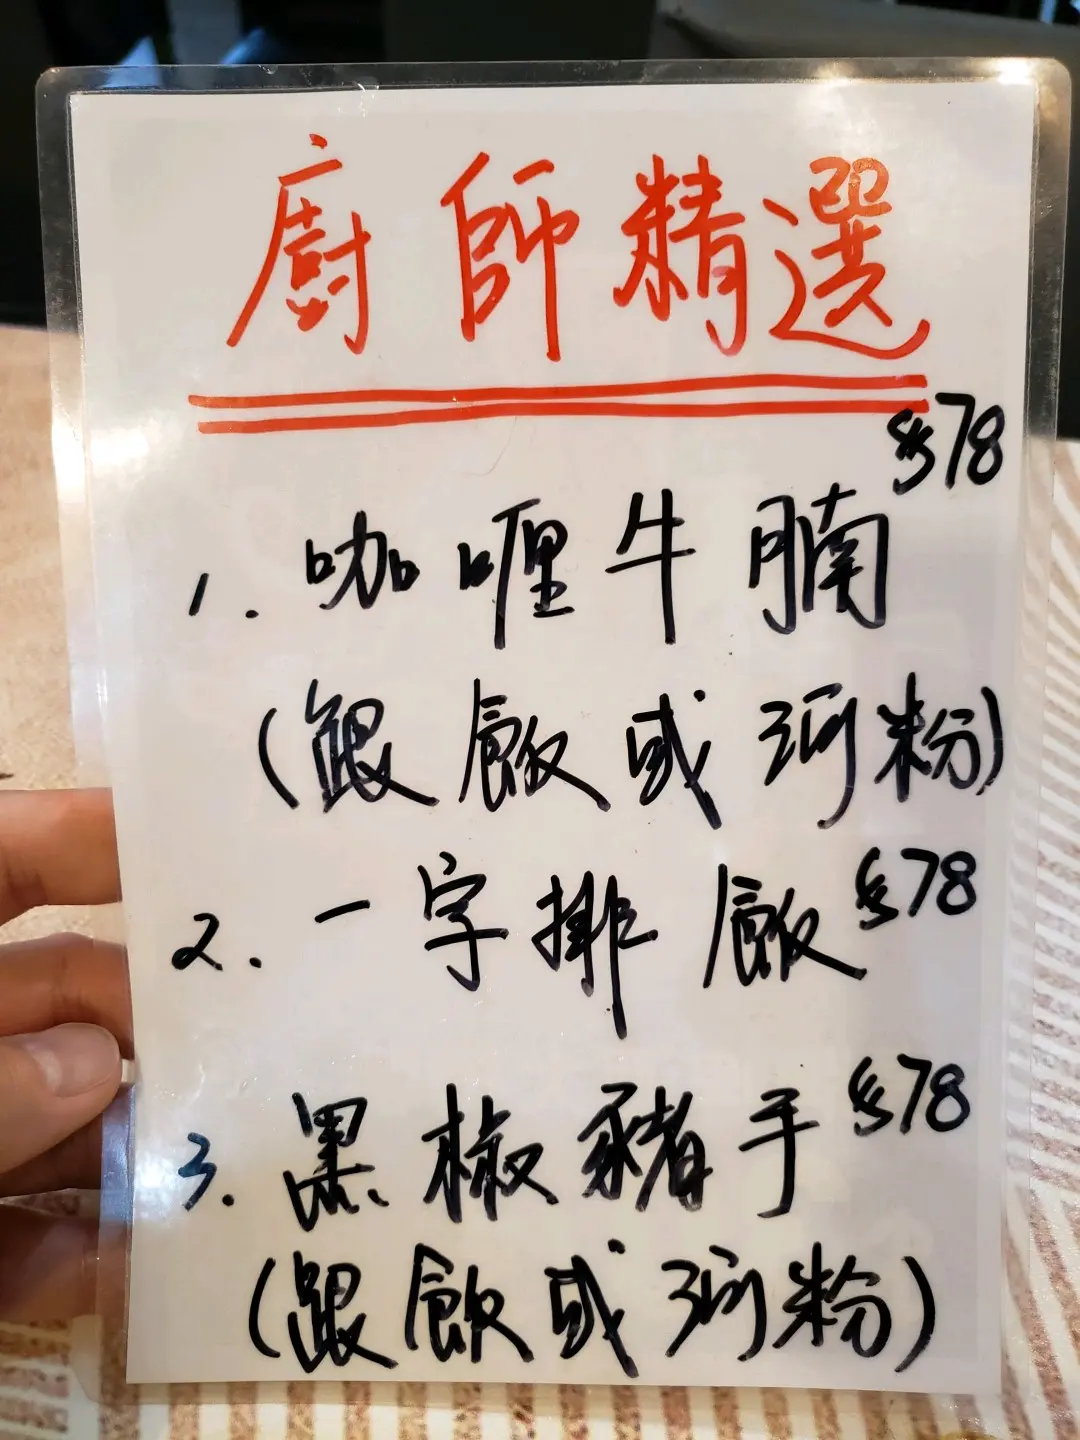 廚師精選
$78
1. 咖喱牛腩
(跟飯或河粉)
2. 一字排飯 $78
3. 黑椒豬手 $78
(跟飯或河粉)